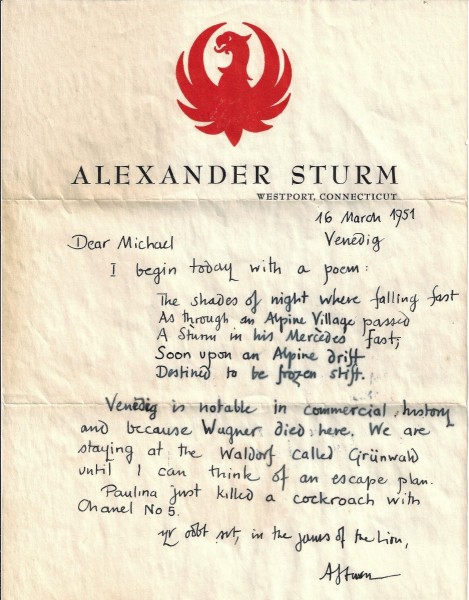 ALEXANDER STURM
WESTPORT, CONNECTICUT
16 March 1951
Venedig
Dear Michael
I begin today with a poem:
The shades of night where falling fast
As through an Alpine Village passed
A Sturm in his Mercedes fast,
Soon upon an Alpine drift
Destined to be frozen stift.
Venedig is notable in commercial history
and because Wagner died here. We are
staying at the Waldorf called Grünwald
until I can think of an escape plan.
Paulina just killed a cockroach with
Chanel No 5.
yr obdt svt, in the jaws of the Lion,
ASturm